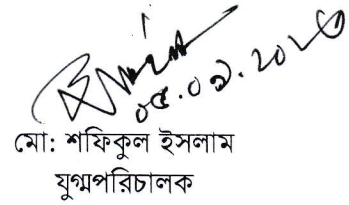 ০৫.০৯.২০২৩
মো: শফিকুল ইসলাম
যুগ্মপরিচালক